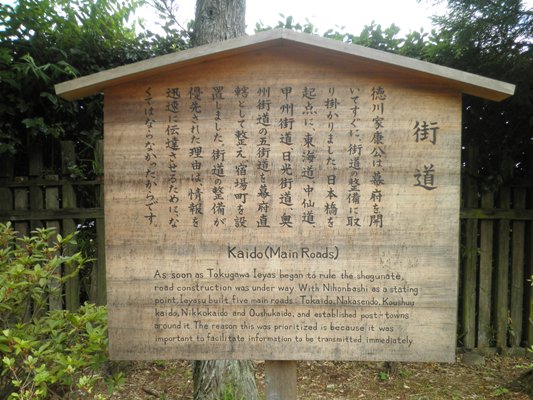 街道
徳川家康公は幕府を開
いてすぐに、街道の整備に取
り掛かりました。日本橋を
起点に、東海道、中仙道、
甲州街道、日光街道、奥
州街道の五街道を幕府直
轄として整え、宿場町を設
置しました。街道の整備が
優先された理由は、情報を
迅速に伝達させるために、な
くてはならなかったからです。
Kaido(Main Roads)
As soon as Tokugawa Ieyas began to rule the shogunate,
road construction was under way. With Nihonbashi as a stating
point, Ieyasu built five main roads: Tokaido, Nakasendo, Koushuu
kaido, Nikkokaido and Oushukaido, and established post-towns
around it The reason this was prioritized is because it was
important to facilitate information to be transmitted immediately